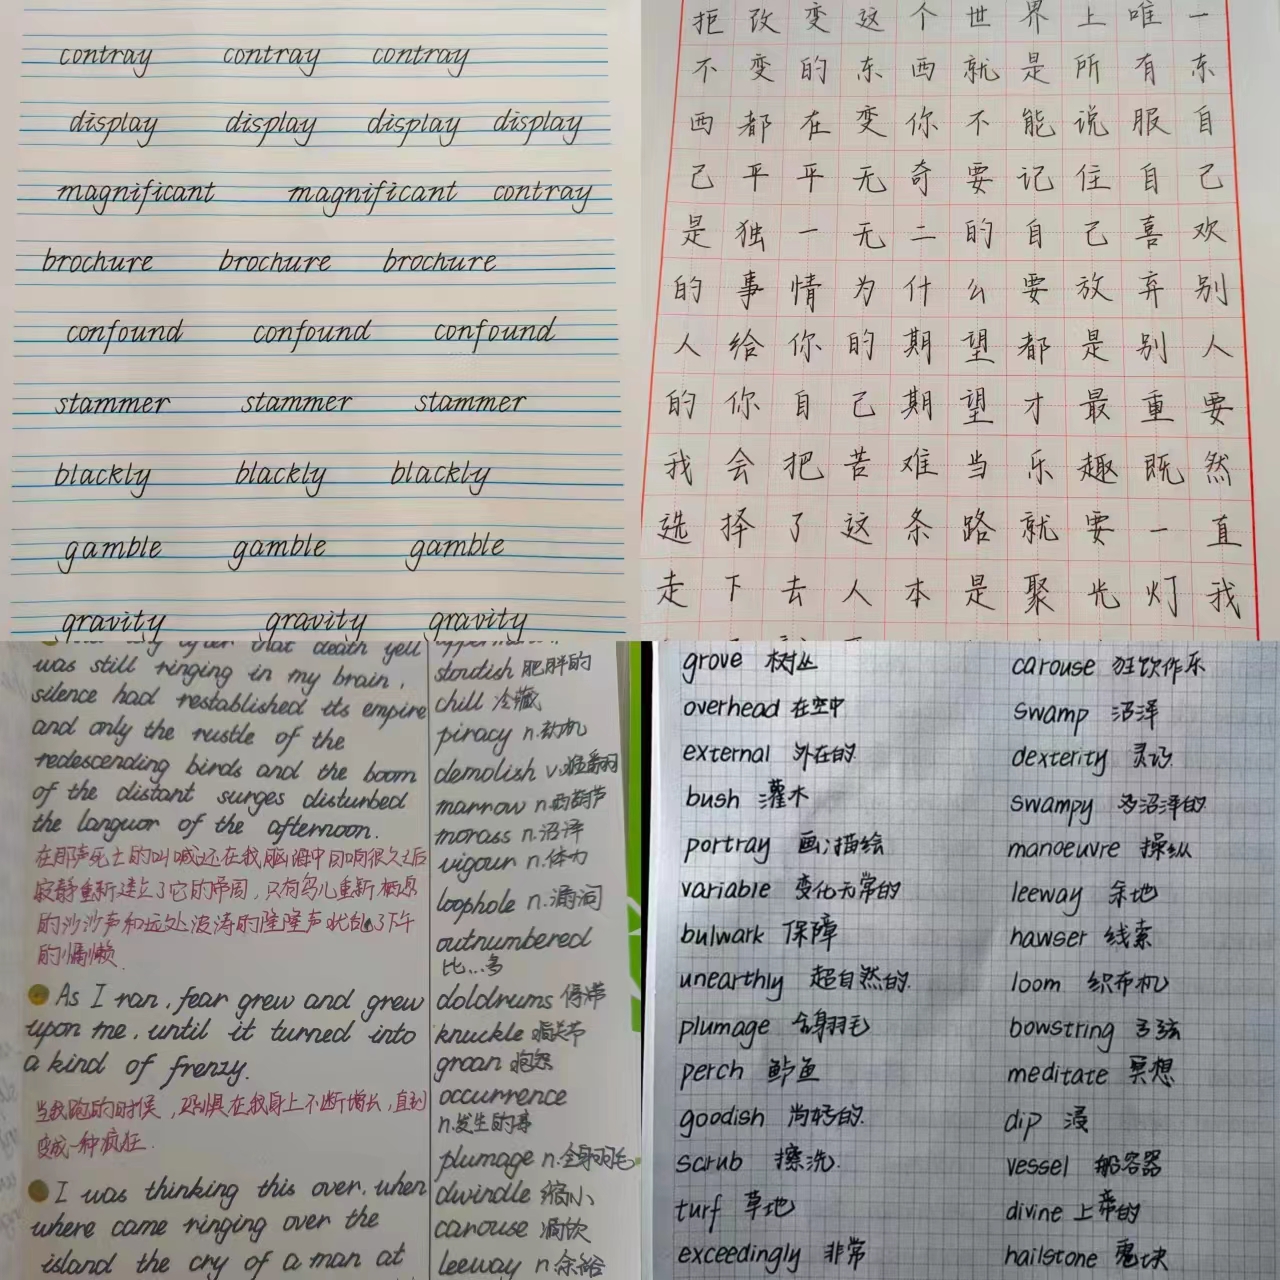 contray contray contray
display display display display
magnificant magnificant contray
brochure brochure brochure
confound confound confound
stammer stammer stammer
blackly blackly blackly
gamble gamble gamble
gravity gravity gravity
拒改变这个世界上唯一
不变的东西就是所有东
西都在变你不能说服自
己平平无奇要记住自己
是独一无二的自己喜欢
的事情为什么要放弃别
人给你的期望都是别人
的你自己期望才最重要
我会把苦难当乐趣既然
选择了这条路就要一直
走下去人本是聚光灯我
that death yell
was still ringing in my brain,
silence had restablished its empire
and only the rustle of the
redescending birds and the boom
of the distant surges disturbed
the languor of the afternoon.
在那声死亡的叫喊还在我脑海中回响很久之后
寂静重新建立了它的帝国,只有鸟儿重新栖息
的沙沙声和远处波涛的隆隆声扰乱了下午
的慵懒
As I ran, fear grew and grew
upon me, until it turned into
a kind of frenzy.
当我跑的时候,恐惧在我身上不断增长,直到
变成一种疯狂.
I was thinking this over, when
where came ringing over the
island the cry of a man at
stoutish 肥胖的
chill 冷藏
piracy n.劫机
demolish v.
marrow n.西葫芦
morass n.沼泽
vigour n.体力
loophole n.漏洞
outnumbered
比…多
doldrums 停滞
knuckle 指关节
groan 抱怨
occurrence
n.发生的事
plumage n.全身羽毛
dwindle 缩小
carouse 痛饮
leeway n.余裕
grove 树丛
overhead 在空中
external 外在的
bush 灌木
portray 画;描绘
variable 变化无常的
bulwark 保障
unearthly 超自然的
plumage 全身羽毛
perch 鲈鱼
goodish 尚好的
scrub 擦洗
turf 草地
exceedingly 非常
carouse 狂饮作乐
swamp 沼泽
dexterity 灵巧
swampy 多沼泽的
manoeuvre 操纵
leeway 余地
hawser 线索
loom 织布机
bowstring 弓弦
meditate 冥想
dip 浸
vessel 船容器
divine 上帝的
hailstone 雹块